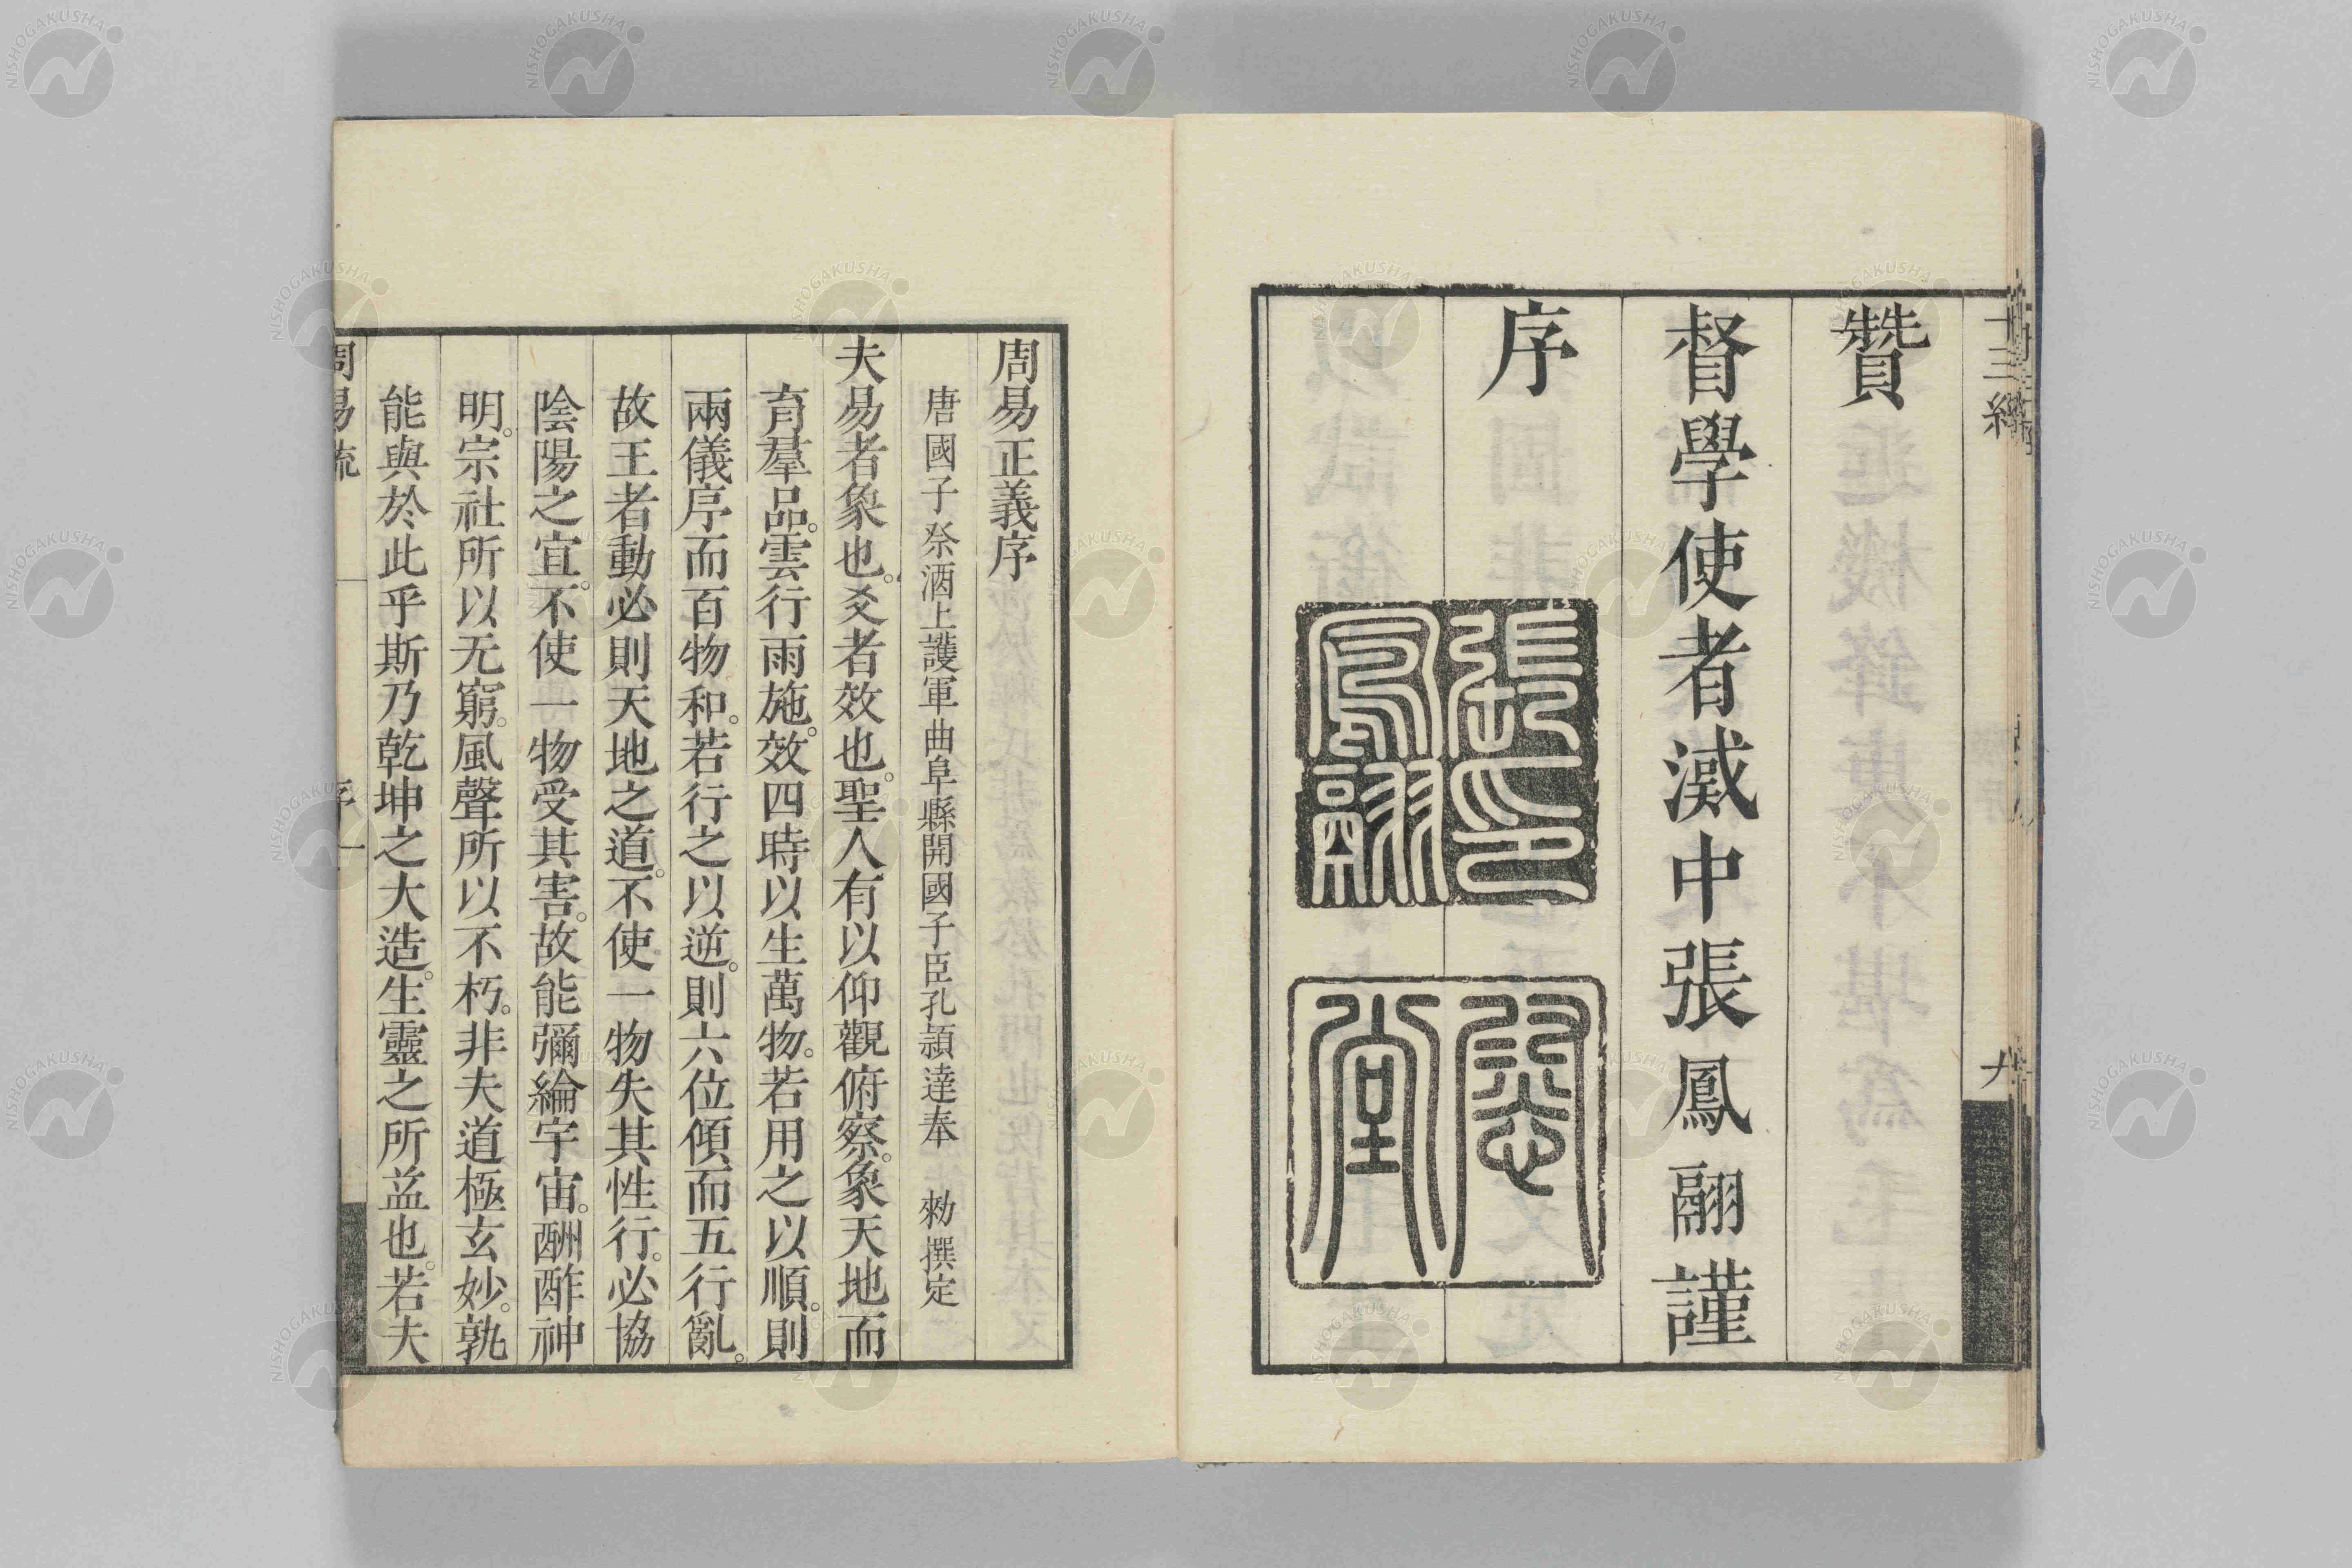 十三經
贊
督學使者㵄中張鳳翮謹
序
張印
鳳翮
堂
周易正義序
唐國子祭酒上護軍曲阜縣開國子臣孔頴達奉　勑撰定
夫易者象也。爻者效也。聖人有以仰觀俯察。象天地而
育羣品。雲行雨施。效四時以生萬物。若用之以順。則
兩儀序而百物和。若行之以逆。則六位傾而五行亂。
故王者動必則天地之道。不使一物失其性行。必協
陰陽之宜。不使一物受其害。故能彌綸宇宙。酬酢神
明。宗社所以无窮。風聲所以不朽。非夫道極玄妙。孰
能與於此乎斯乃乾坤之大造。生靈之所益也。若夫
周易疏
序
一